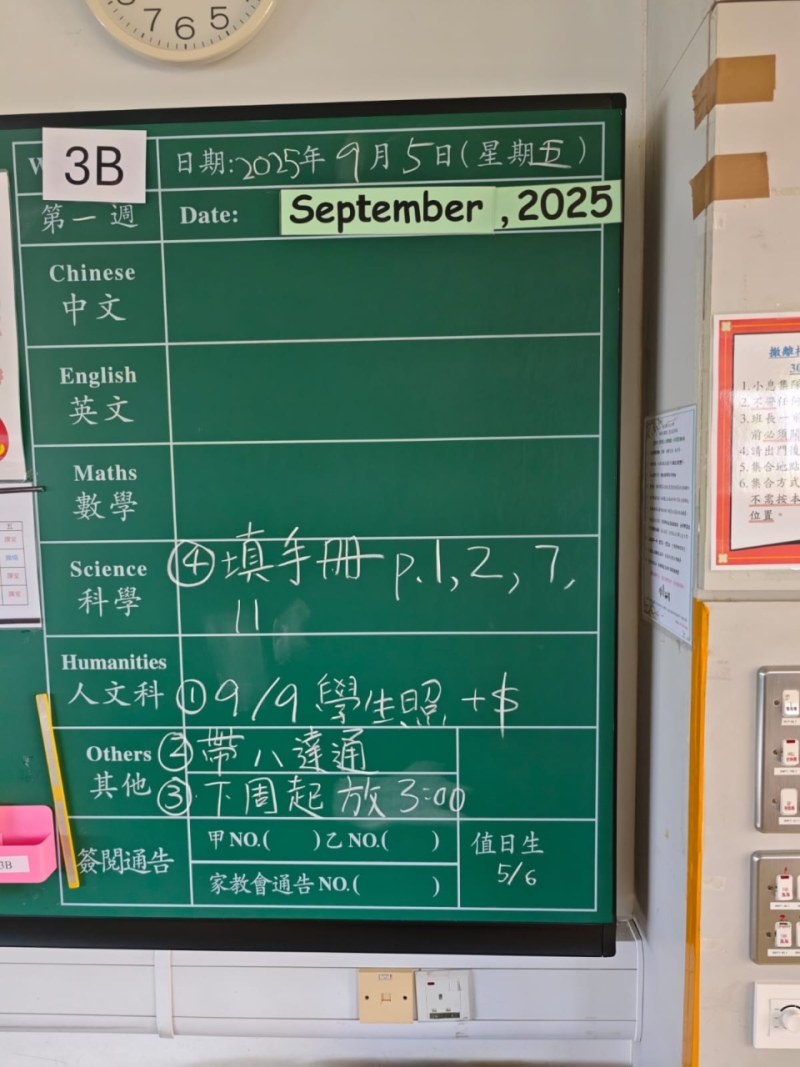 7 6 5
3B
日期:2025年9月5日(星期五)
第一週
Date: September , 2025
Chinese
中文
English
英文
Maths
數學
Science
科學
④填手冊 p.1, 2, 7,
11
Humanities
人文科
①9/9 學生照 +$
Others
其他
②帶八達通
③下周起放3:00
簽閱通告
甲NO.( )乙NO.( )
家教會通告NO.( )
值日生
5/6
3B
1.小息集
2.不帶任何
3.班長一
前必須
4.請出門後
5.集合地點
6.集合方式
不需按本
位置。